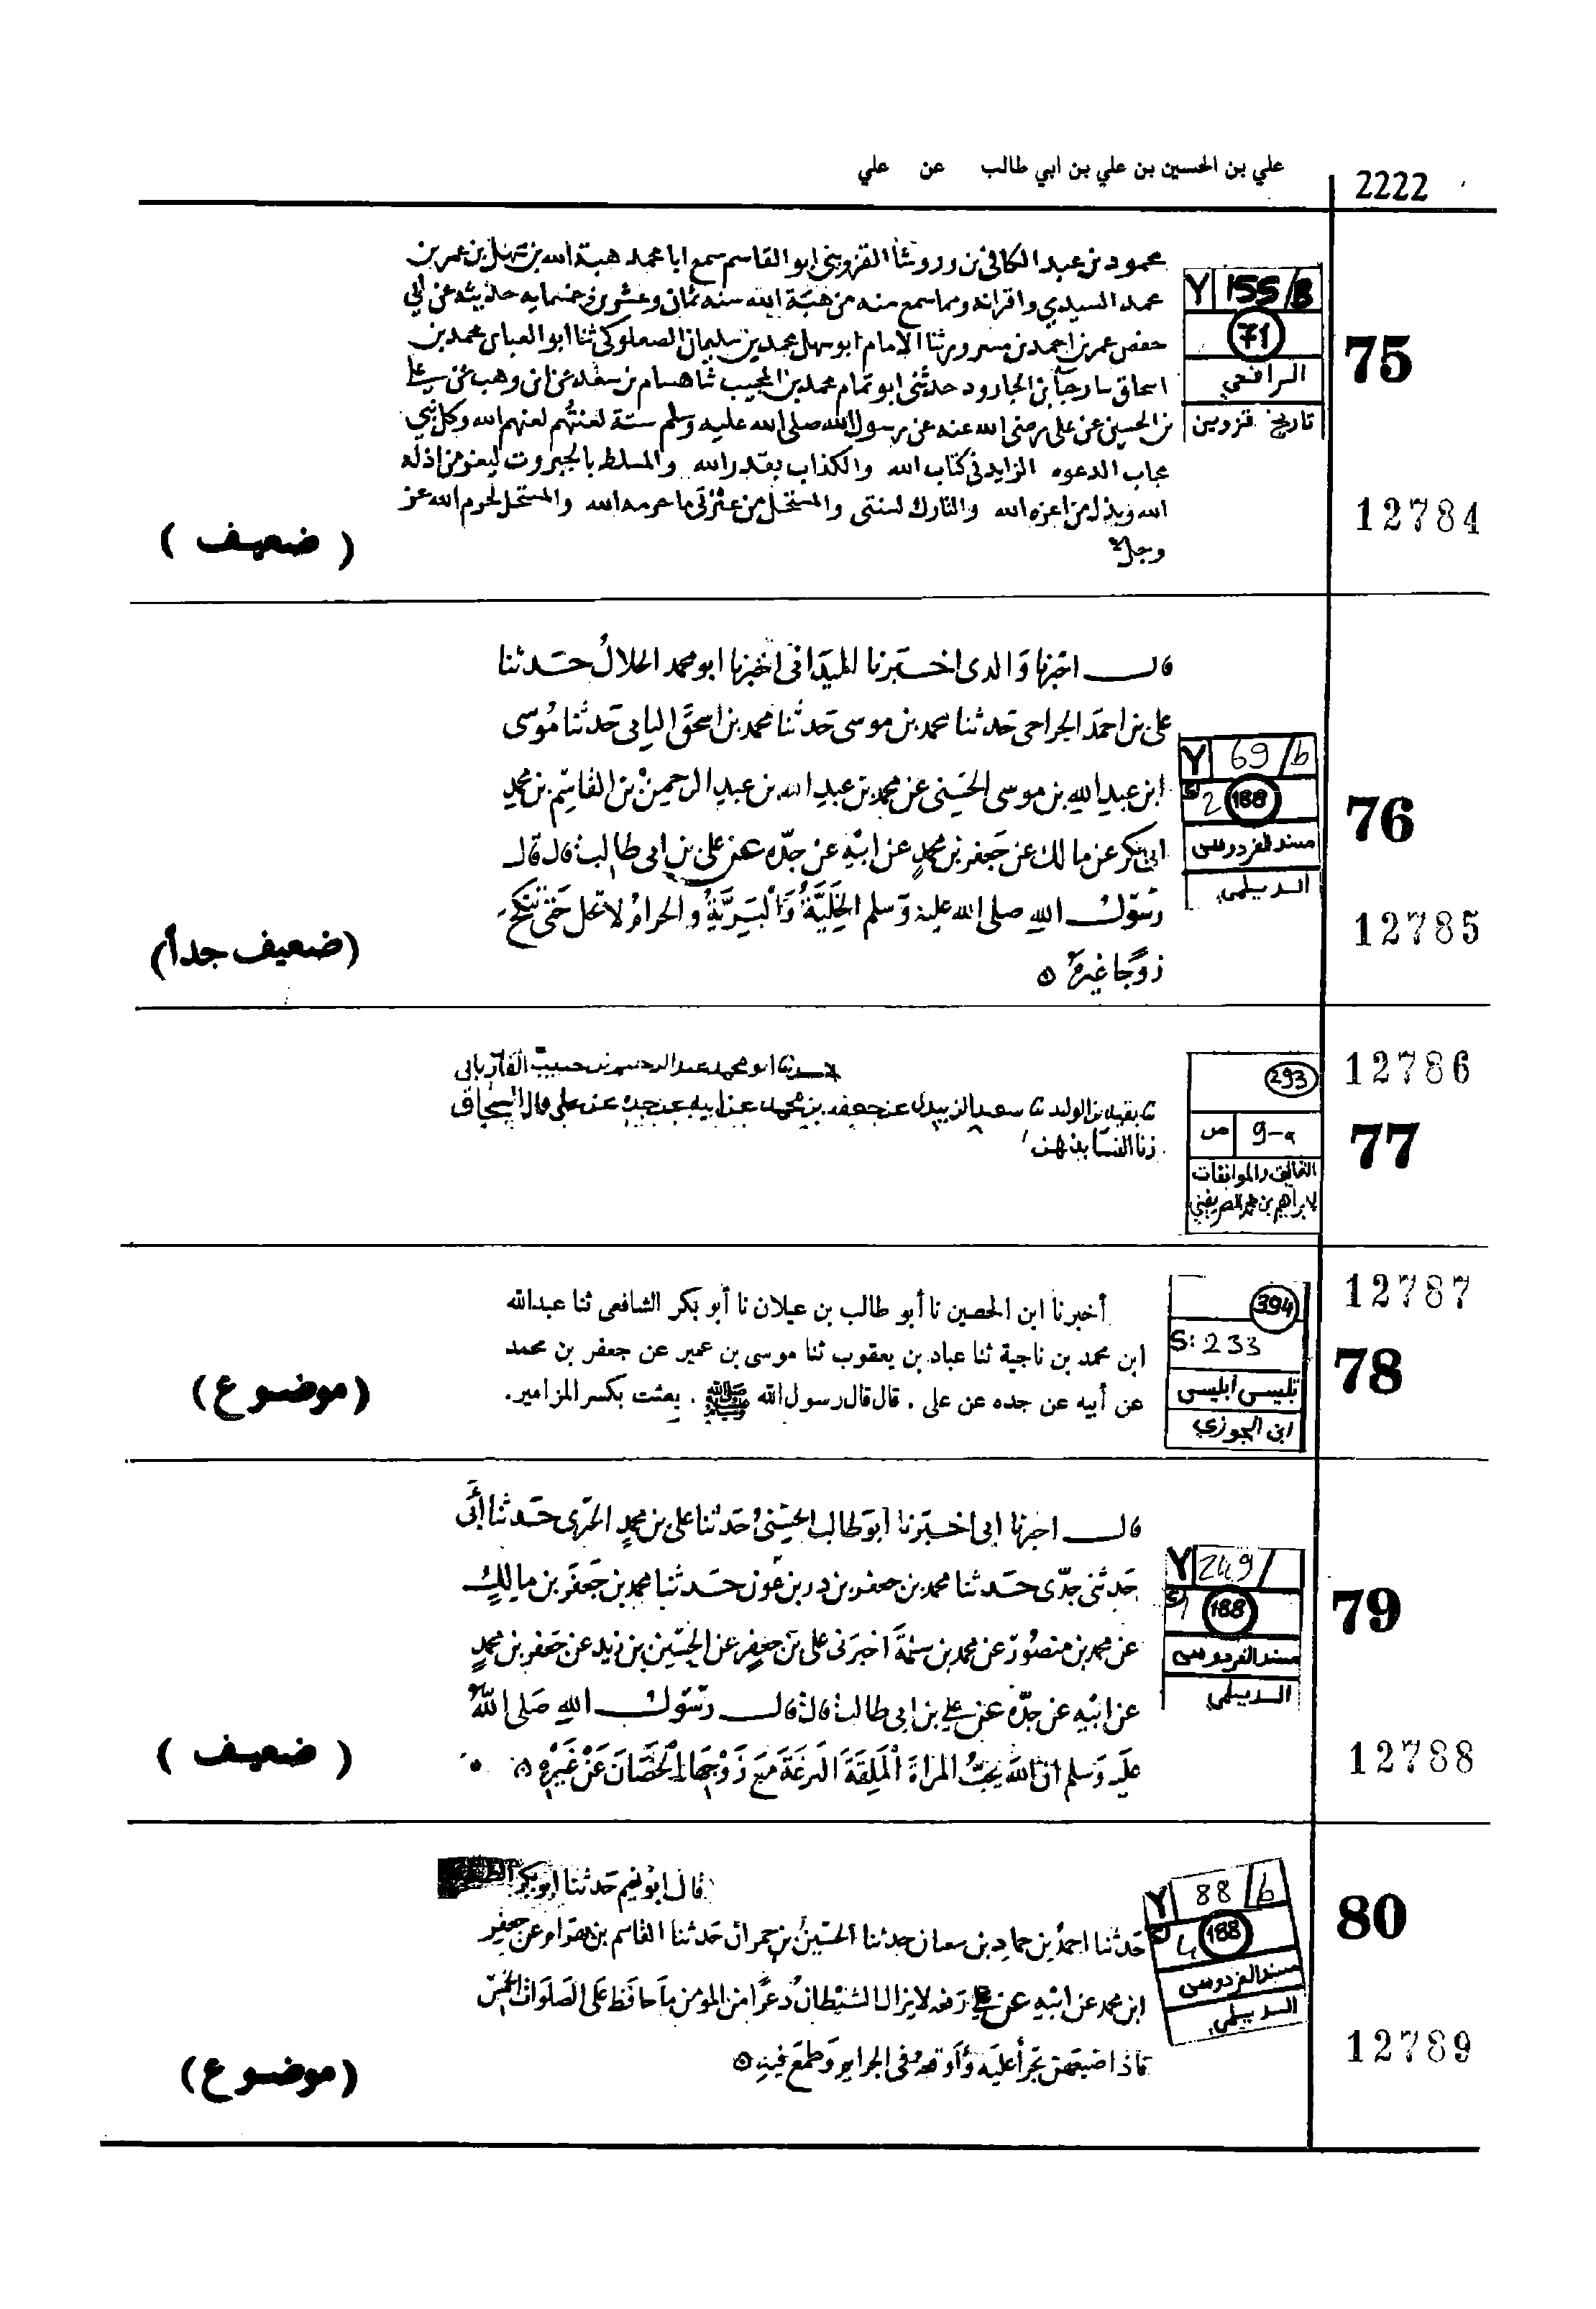 علي بن الحسين بن علي بن ابي طالب عن علي
2222
محمود بن عبد الكافي بن القزويني ابو القاسم سمع ابا محمد هبة الله بن سهل بن عمر بن
محمد السيدي واقرانه ومما سمع منه من هبة الله سنه ثمان وعشرين وخمسمايه حديثه عن ابي
حفص عمر بن احمد بن مسرور ثنا الامام ابو سهل محمد بن سليمان الصعلوكي ثنا ابو العباس محمد بن
اسحاق بن الجارود حدثني ابو تمام محمد بن المجيب ثنا هشام بن سعد عن ابن وهب عن علي
بن الحسين عن علي رضي الله عنه عن رسول الله صلى الله عليه وسلم ستة لعنتهم لعنهم الله وكل نبي
مجاب الدعوه الزايد في كتاب الله والكذاب بقدر الله والمسلط بالجبروت ليعز من اذله
الله ويذل من اعزه الله والتارك لسنتي والمستحل من عترتي ما حرم الله والمستحل لحرم الله عز
وجل
Y 155/B
71
الرافعي
تاريخ قزوين
75
12784
( ضعيف )
قال اخبرنا والدي اخبرنا الميداني اخبرنا ابو محمد الخلال حدثنا
علي بن احمد الجراحي حدثنا محمد بن موسى حدثنا محمد بن اسحق البابي حدثنا موسى
ابن عبد الله بن موسى الحسني عن محمد بن عبد الله بن عبد الرحمن بن القاسم بن محمد
ابي بكر عن مالك عن جعفر بن محمد عن ابيه عن جده عن علي بن ابي طالب قال قال
رسول الله صلى الله عليه وسلم الخلية والبرية والحرام لا تحل حتى تنكح
زوجا غيره
Y 69/b
2 188
مسند الفردوس
الديلمي
76
12785
(ضعيف جداً)
ثنا ابو محمد عبد الرحمن بن حبيب الفاريابي
ثنا بقية بن الوليد ثنا سعيد الزبيدي عن جعفر بن محمد عن ابيه عن جده عن علي قال
زنا
293
ص 9-a
لابراهيم بن محمد الصريفيني
12786
77
أخبرنا ابن الحصين نا أبو طالب بن عيلان نا أبو بكر الشافعى ثنا عبدالله
ابن محمد بن ناجية ثنا عباد بن يعقوب ثنا موسى بن عمير عن جعفر بن محمد
عن أبيه عن جده عن على . قال قال رسول الله ﷺ . بعثت بكسر المزامير.
394
S: 233
تلبيس ابليس
ابن الجوزي
12787
78
(موضوع)
قال اخبرنا ابي اخبرنا ابو طالب الحسني حدثنا علي بن محمد حدثنا أبي
حدثني جدى حدثنا محمد بن جعفر بن حدثنا محمد بن جعفر بن مالك
عن محمد بن منصور عن محمد بن اخبرني علي بن جعفر عن الحسين بن زيد عن جعفر بن محمد
عن ابيه عن جده عن علي بن ابي طالب قال قال رسول الله صلى الله
عليه وسلم ان الله يحب المراة الملقة البرعة مع زوجها الحصان عن غيره
Y 249/
1 188
مسند الفردوس
الديلمي
79
12788
( ضعيف )
قال ابو نعيم حدثنا ابو بكر
حدثنا احمد بن حماد بن حدثنا الحسين بن حمران حدثنا القاسم بن بهرام عن جعفر
ابن محمد عن ابيه عن علي رفعه لا يزال الشيطان ذعرا من المومن ما حافظ على الصلوات الخمس
فاذا ضيعهن تجرأ عليه وأوقعه في الجراير وطمع فيه
Y 88/b
4 188
مسند الفردوس
الديلمي
80
12789
(موضوع)